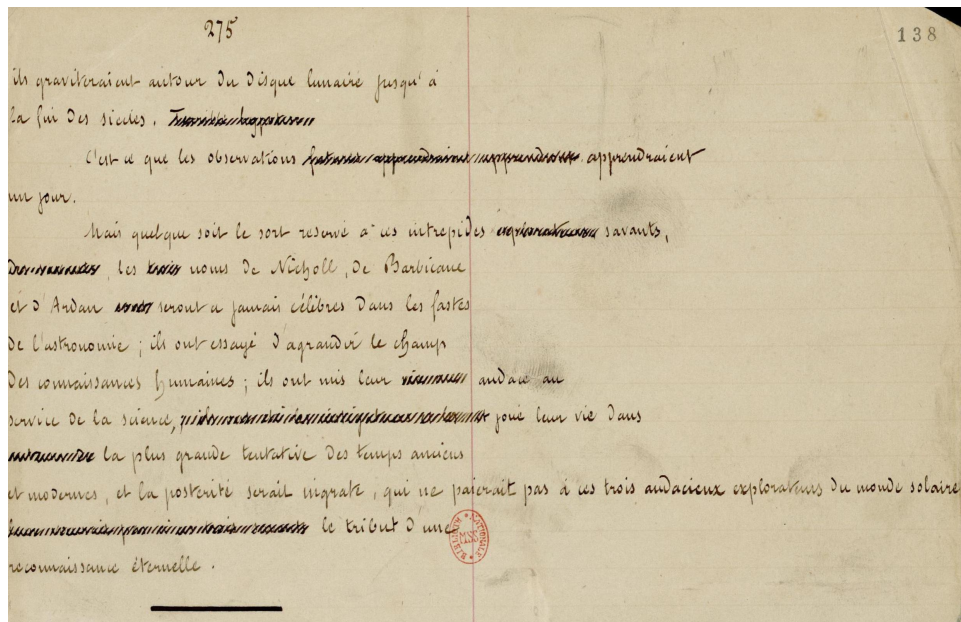 275
138
ils graviteraient autour du disque lunaire jusqu'à
la fin des siècles.
C'est ce que les observations apprendraient
un jour.
Mais quelque soit le sort reservé à ces intrepides savants,
les noms de Nicholl, de Barbicane
et d'Ardan seront a jamais célèbres dans les fastes
de l'astronomie ; ils ont essayé d'agrandir le champ
des connaissances humaines ; ils ont mis leur audace au
service de la science, joué leur vie dans
la plus grande tentative des temps anciens
et modernes, et la postérité serait ingrate, qui ne paierait pas à ces trois audacieux explorateurs du monde solaire
le tribut d'une
reconnaissance éternelle.
NATIONALE
MSS